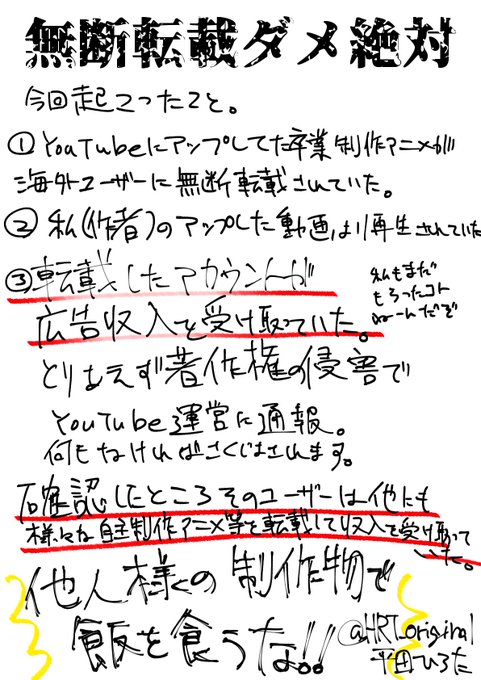 無断転載ダメ絶対
今回起こったこと。
①YouTubeにアップしてた卒業制作アニメが
海外ユーザーに無断転載されていた。
②私(作者)のアップした動画より再生されていた
③転載したアカウントが
広告収入を受け取っていた。
私もまだ
もらったコト
ねーんだぞ
とりあえず著作権の侵害で
YouTube運営に通報。
何もなければさくじょされます。
確認したところそのユーザーは他にも
様々な自主制作アニメ等を転載して収入を受け取って
いた。
他人様の制作物で
飯を食うな!!
@HRT_original
平田ひろた